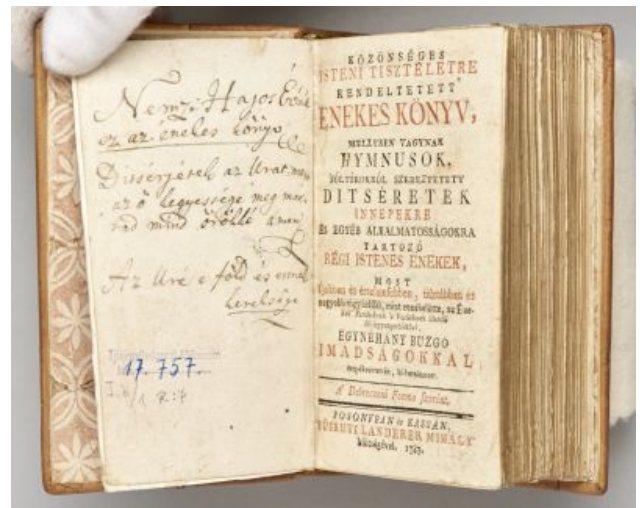 Nemz. Hajos
ez az énekes könyv
Ditsérjétek az Urat mert
az ő kegyessége meg ma-
rad mind örökké amen
Az Uré e föld és ennek
kereksége
17.757.
KÖZÖNSÉGES
ISTENI TISZTELETRE
RENDELTETETT
ENEKES KÖNYV,
MELLYBEN VAGYNAK
HYMNUSOK,
SÓLTÁROKBÓL SZEREZTETETT
DITSÉRETEK
INNEPEKRE
ÉS EGYÉB ALKALMATOSSÁGOKRA
TARTOZÓ
RÉGI ISTENES ENEKEK,
MOST
EGYNEHÁNY BUZGO
IMADSAGOKKAL
A Debreczeni Forma szerint.
POSONYBAN és KASSÁN,
FÜSKUTI LANDERER MIHÁLY
költségével. 1767.